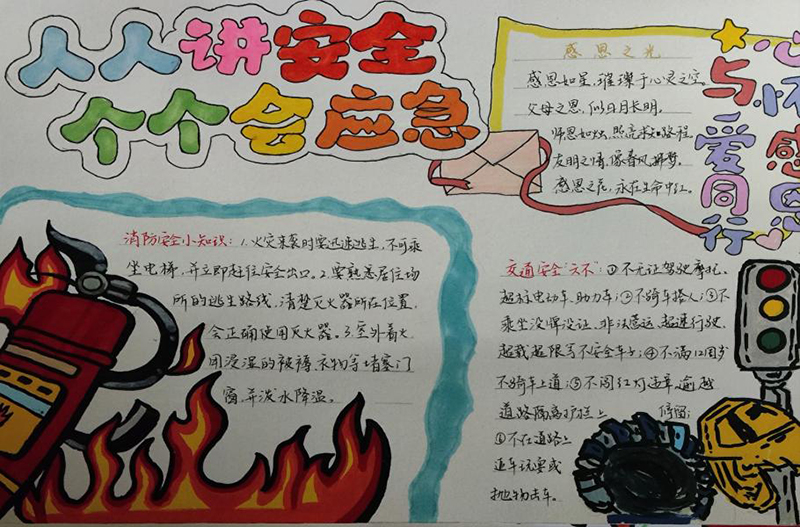 人人讲安全
个个会应急
感恩之光
感恩如星，璀璨于心灵之空。
父母之恩，似日月长明，
师恩如灿，照亮求知路程，
友朋之情，像春风拂梦。
感恩之花，永在生命中红。
心怀感恩
与爱同行
消防安全小知识：1.火灾来袭时要迅速逃生，不可乘
坐电梯，并立即赶往安全出口。2.要熟悉居住场
所的逃生路线，清楚灭火器所在位置，
会正确使用灭火器。3.室外着火
用浸湿的被褥、衣物等堵塞门
窗，并泼水降温。
交通安全“六不”：①不无证驾驶摩托、
超标电动车、助力车；②不骑车搭人；③不
乘坐没牌没证、非法营运、超速行驶、
超载超限等不安全车；④不满12周岁
不骑车上道；⑤不闯红灯违章逾越
道路隔离护栏上 停留；
⑥不在道路上
追车玩耍或
抛物击车。